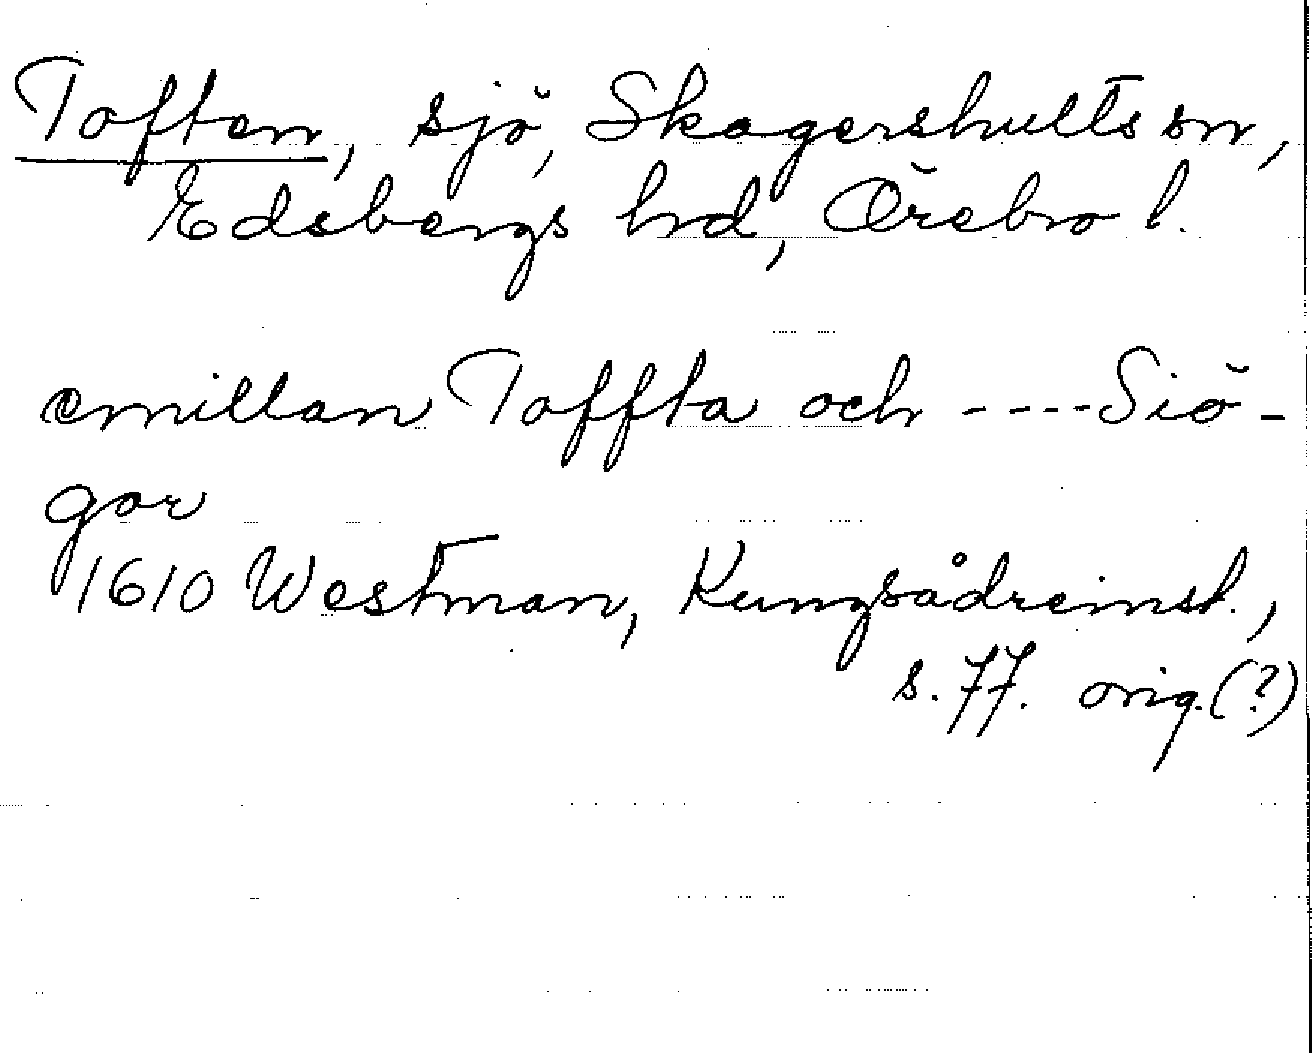 Toften, sjö, Skagershults sn,
Edsbergs hd, Örebro l.
emillan Toffta och ----Siö-
gar
1610 Westman, Kungsådreinst.,
s. 77. orig. (?)